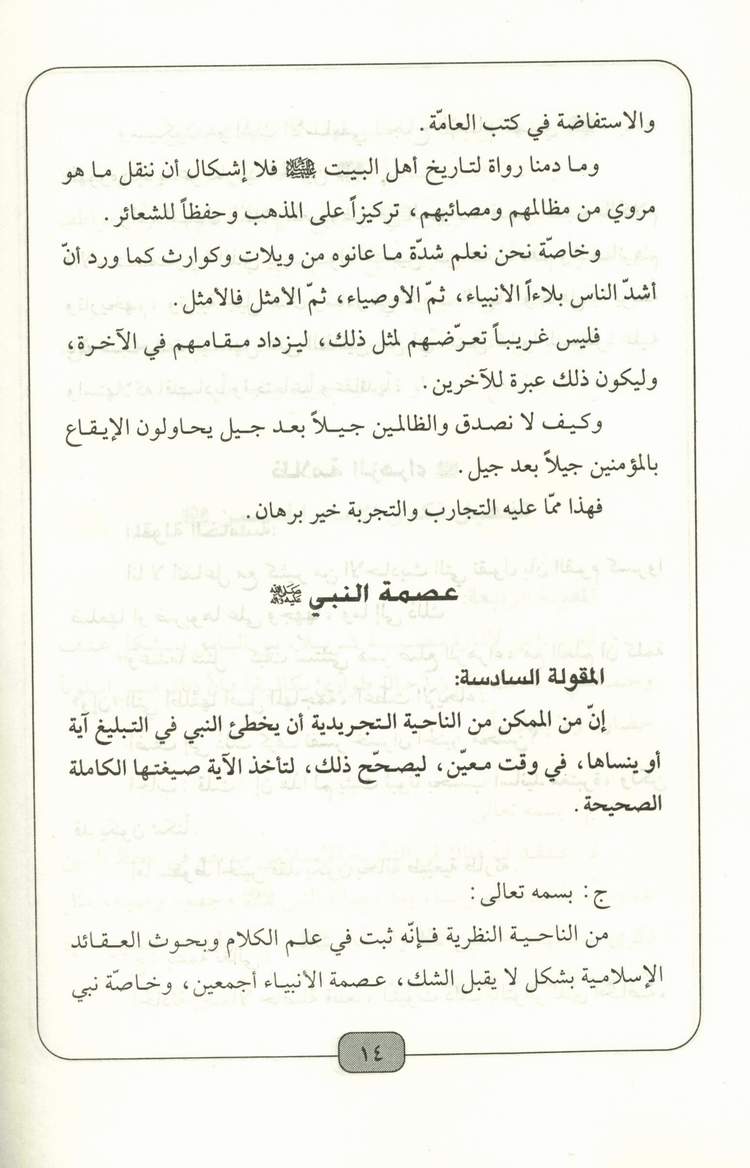 والاستفاضة في كتب العامّة.
وما دمنا رواة لتاريخ أهل البيت ﵈ فلا إشكال أن ننقل ما هو
مروي من مظالمهم ومصائبهم، تركيزاً على المذهب وحفظاً للشعائر.
وخاصّة نحن نعلم شدّة ما عانوه من ويلات وكوارث كما ورد أنّ
أشدّ الناس بلاءاً الأنبياء، ثمّ الأوصياء، ثمّ الأمثل فالأمثل.
فليس غريباً تعرّضهم لمثل ذلك، ليزداد مقامهم في الآخرة،
وليكون ذلك عبرة للآخرين.
وكيف لا نصدق والظالمين جيلاً بعد جيل يحاولون الإيقاع
بالمؤمنين جيلاً بعد جيل.
فهذا ممّا عليه التجارب والتجربة خير برهان.
عصمة النبي ﷺ
المقولة السادسة:
إنّ من الممكن من الناحية التجريدية أن يخطئ النبي في التبليغ آية
أو ينساها، في وقت معيّن، ليصحّح ذلك، لتأخذ الآية صيغتها الكاملة
الصحيحة.
ج: بسمه تعالى:
من الناحية النظرية فإنّه ثبت في علم الكلام وبحوث العقائد
الإسلامية بشكل لا يقبل الشك، عصمة الأنبياء أجمعين، وخاصّة نبي
١٤